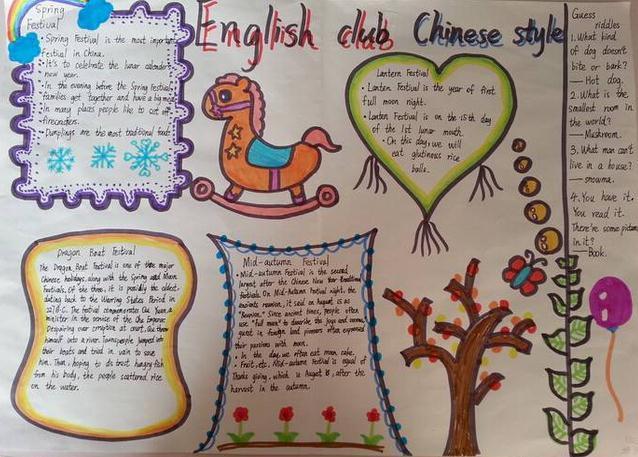 English club Chinese style
Spring
Festival
• Spring Festival is the most important
festival in China.
• It's to celebrate the lunar calendar
new year.
• In the evening before the Spring Festival
families get together and have a big meal
• In many places people like to set off
firecrackers.
• Dumplings are the most traditional food
Lantern Festival
• Lantern Festival is the year of first
full moon night.
• Lantern Festival is on the 15th day
of the 1st lunar mouth.
• On this day, we will
eat glutinous rice
balls.
Guess
riddles
1. What kind
of dog doesn't
bite or bark?
— Hot dog.
2. What is the
smallest room in
the world?
— Mushroom.
3. What man can't
live in a house?
— snowma.
4. You have it.
You read it.
There're some pictures
in it?
— Book.
Dragon Boat Festival
The Dragon Boat Festival is one of three major
Chinese holidays, along with the Spring and Moon
Festivals. Of the three, it is possibly the oldest
dating back to the Warring States Period in
227 B.C. The festival commemorates Qu Yuan, a
minister in the service of the Chu Emperor
Despairing over corruption at court, Qu threw
himself into a river. Townspeople jumped into
their boats and tried in vain to save
him. Then, hoping to distract hungry fish
from his body, the people scattered rice
on the water.
Mid-autumn Festival
• Mid-autumn Festival is the second
largest after the Chinese New Year traditional
festivals. On Mid-Autumn Festival night, the
ancients reunion, it said on August 15 as
"Reunion." Since ancient times, people often
use "full moon" to describe the joys and sorrows,
guest in foreign land pioneers often expressed
their passions with moon.
• In the day, we often eat moon cake.
• Fruit, etc. Mid-autumn Festival is equal of
Thanks giving, which is August 15, after the
harvest in the autumn.